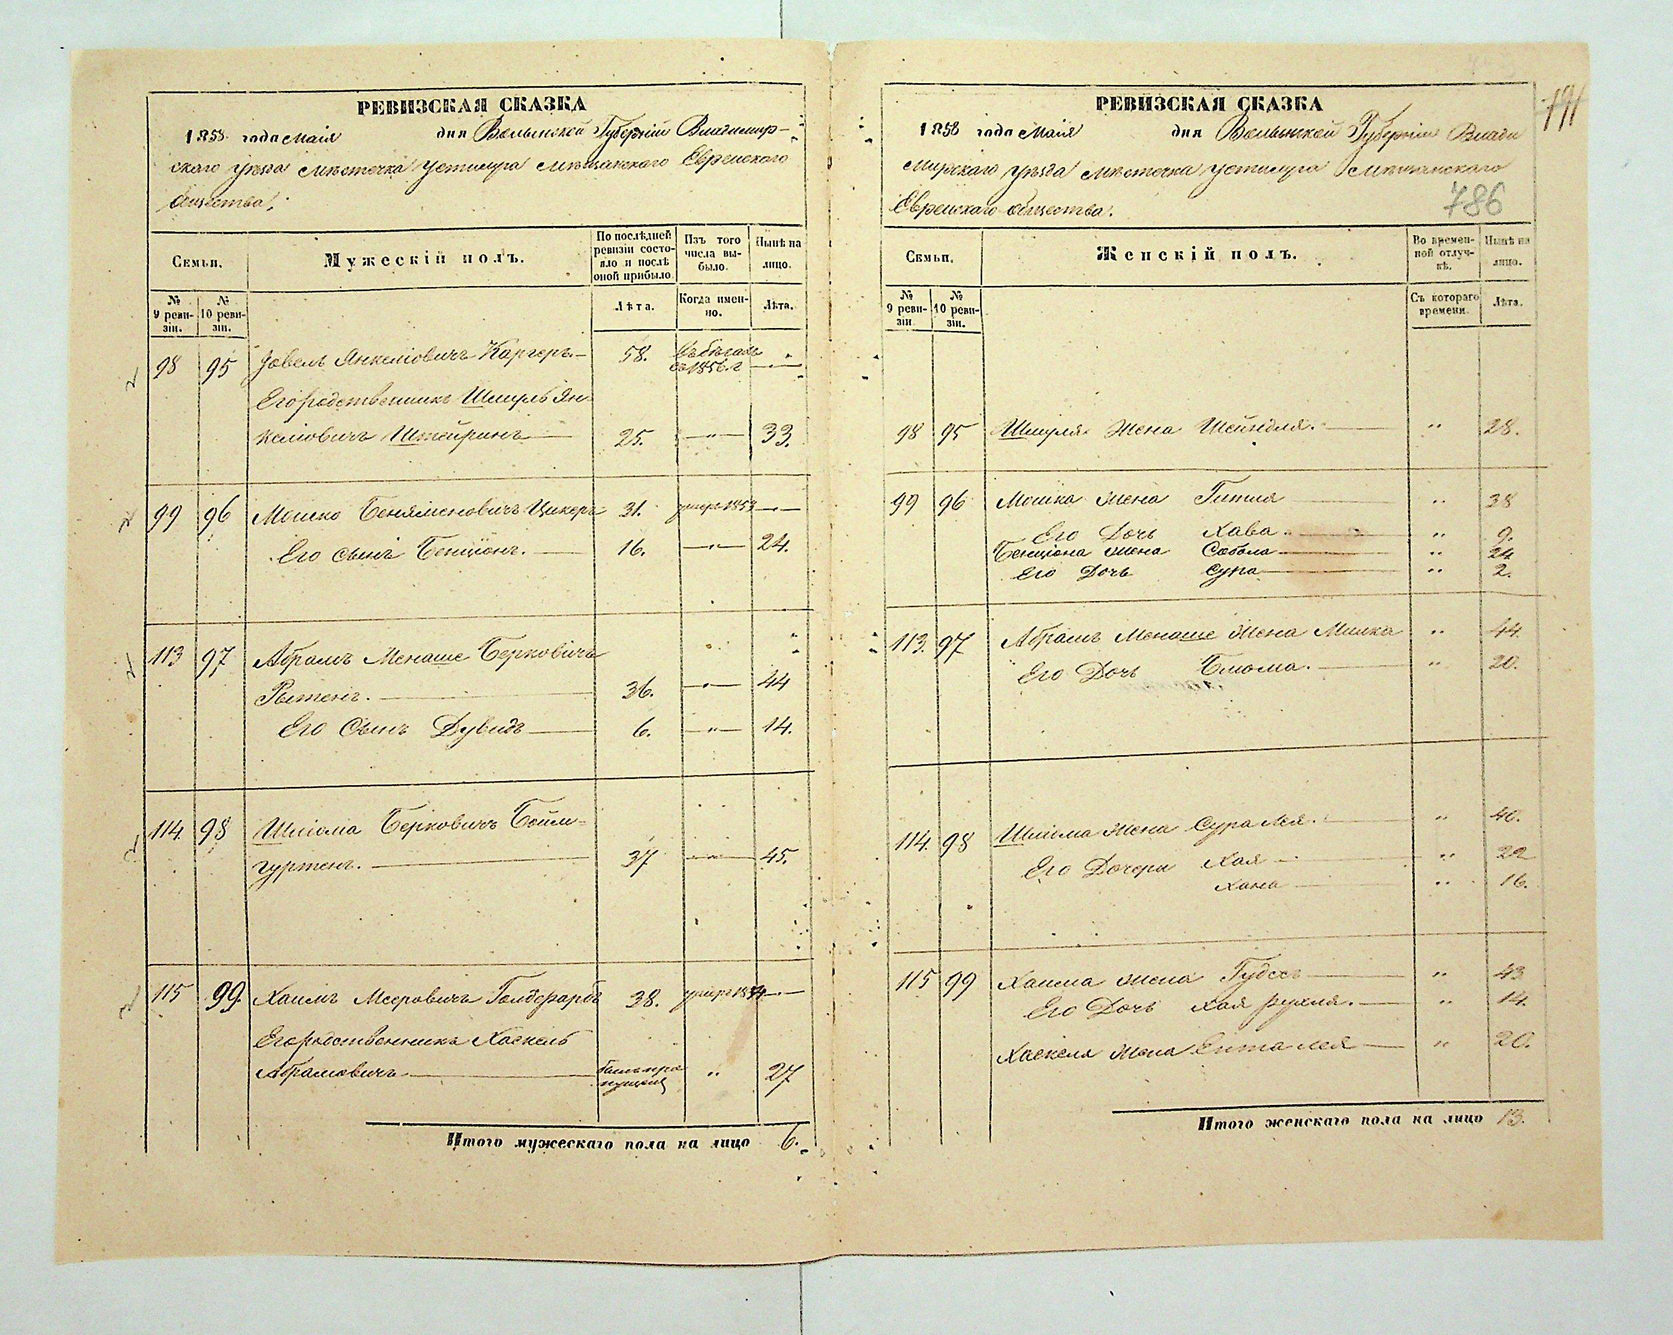 РЕВИЗСКАЯ СКАЗКА
1858 года Маія дня Волынской Губерніи Владимир-
скаго уѣзда мѣстечка Устилуга мѣщанскаго Еврейскаго
общества.
Семьи.
Мужескій полъ.
По послѣдней ревизіи состо-яло и послѣ оной прибыло.
Изъ того числа вы-было.
Нынѣ на лицо.
№ 9 реви-зіи.
№ 10 реви-зіи.
Лѣта.
Когда имен-но.
Лѣта.
98 95 Янкеліовичъ Каргеръ 58. въ 1856 г „
Его родственникъ Шмуль Ян-
келіовичъ Штейринъ 25. „ 33.
99 96 Мошко Беняминовичъ Цикеръ 31. умеръ 1853
Его сынъ Бенціонъ. 16. „ 24.
113 97 Абрамъ Менаше Берковичъ
36. „ 44
Его Сынъ Дувидъ 6. „ 14.
114. 98 Шліома Берковичъ Бойм-
гуртенъ. 37 „ 45.
115 99 Хаимъ Мееровичъ Голдфарбъ 38. умеръ 1854
Его родственникъ Хаскель
Абрамовичъ былъ про-пущенъ „ 27
Итого мужескаго пола на лицо 6.
РЕВИЗСКАЯ СКАЗКА
191
1858 года Маія дня Волынской Губерніи Влади
мирскаго уѣзда мѣстечка Устилуга мѣщанскаго
Еврейскаго общества.
786
Семьи.
Женскій полъ.
Во времен-ной отлуч-кѣ.
Нынѣ на лицо.
№ 9 реви-зіи
№ 10 реви-зіи.
Съ котораго времени.
Лѣта.
98 95 Шмуля Жена Шейндля. „ 28.
99 96 Мошка жена Гитля „ 38
Его Дочь Хава „ 9.
Бенціона жена Собола „ 24
Его Дочь Сура „ 2.
113. 97 Абрамъ Менаше Жена Милка „ 44.
Его Дочь Блюма. „ 20.
114. 98 Шліома Жена Сура Лея. „ 40.
Его Дочери Хая „ 22
Хана „ 16.
115 99 Хаима жена Гудесъ „ 43
Его Дочь Хая Рухля. „ 14.
Хаскеля жена Ента Лея „ 20.
Итого женскаго пола на лицо 13.